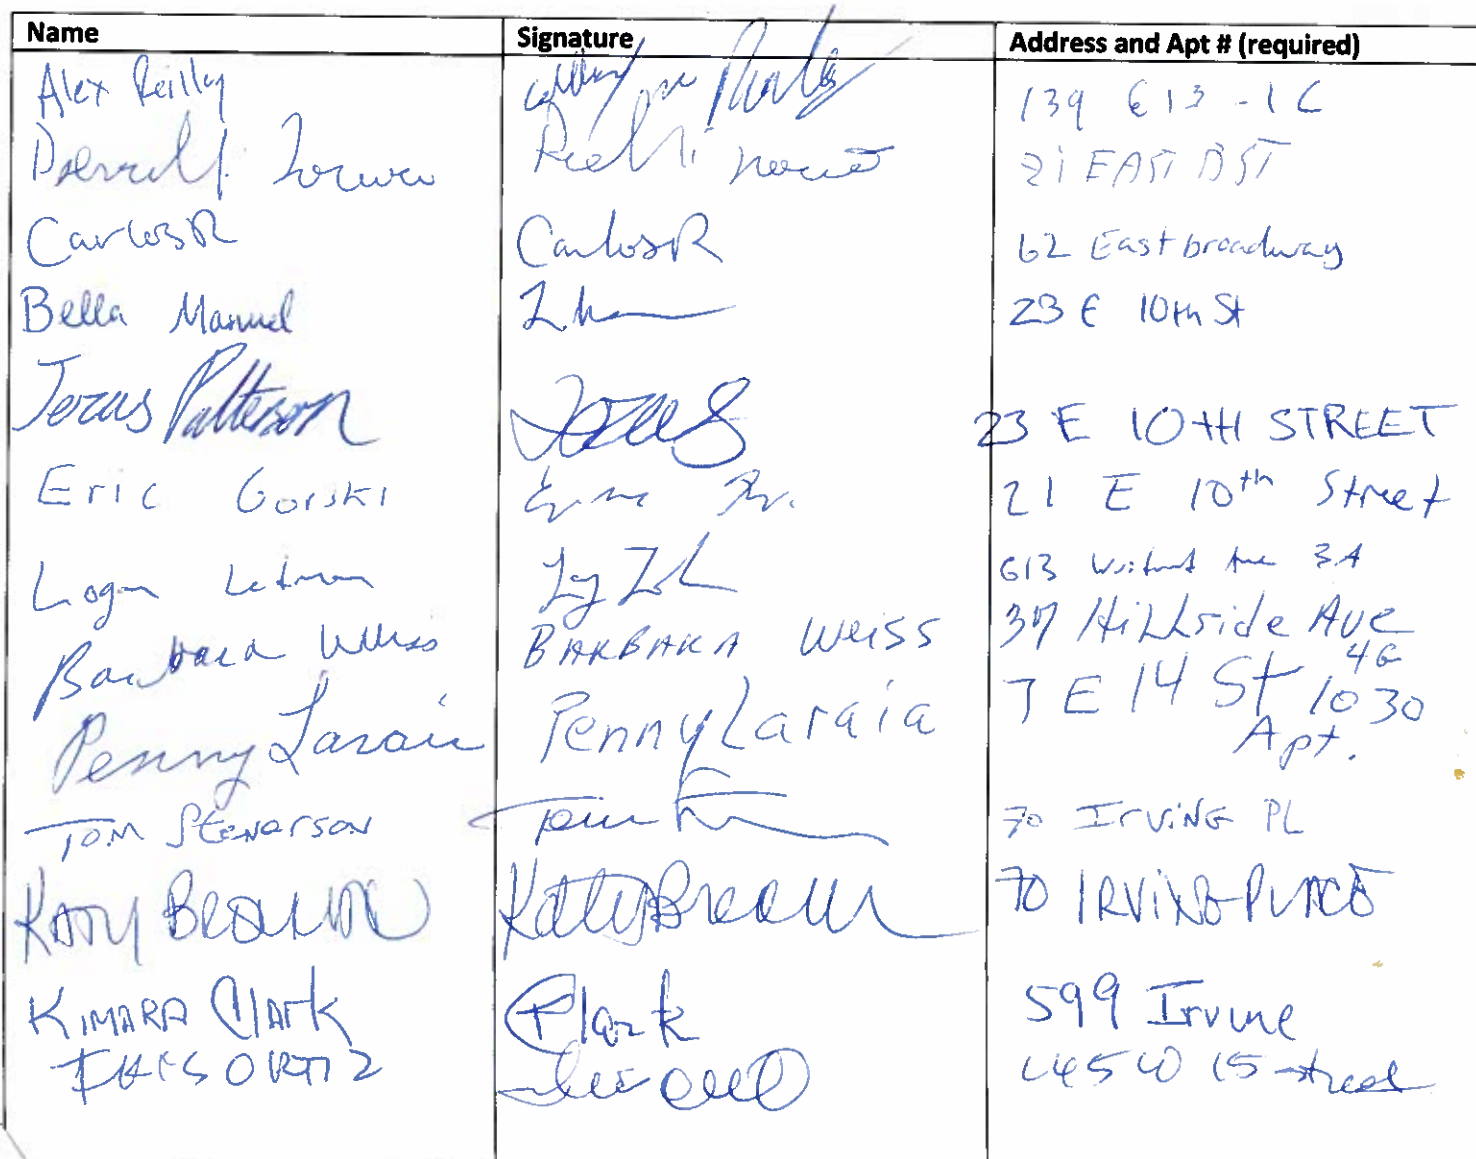 Name Signature Address and Apt # (required)
Alex Reilly 139 E 13 - 1C
21 EAST
CarlosR CarlosR 62 East broadway
Bella Manuel 23 E 10th St
Jozus Patterson Jozus 23 E 10TH STREET
Eric Gorski 21 E 10th Street
Logan 613 Ave 3A
Barbara Weiss BARBARA Weiss 37 Hillside Ave
4G
Penny Laraia Penny Laraia 7 E 14 St 1030
Apt.
Tom Stenerson Tom 70 Irving PL
KATY Katy 70 IRVING PLACE
KIMARA Clark Clark 599 Irvine
IRIS ORTIZ 15 street